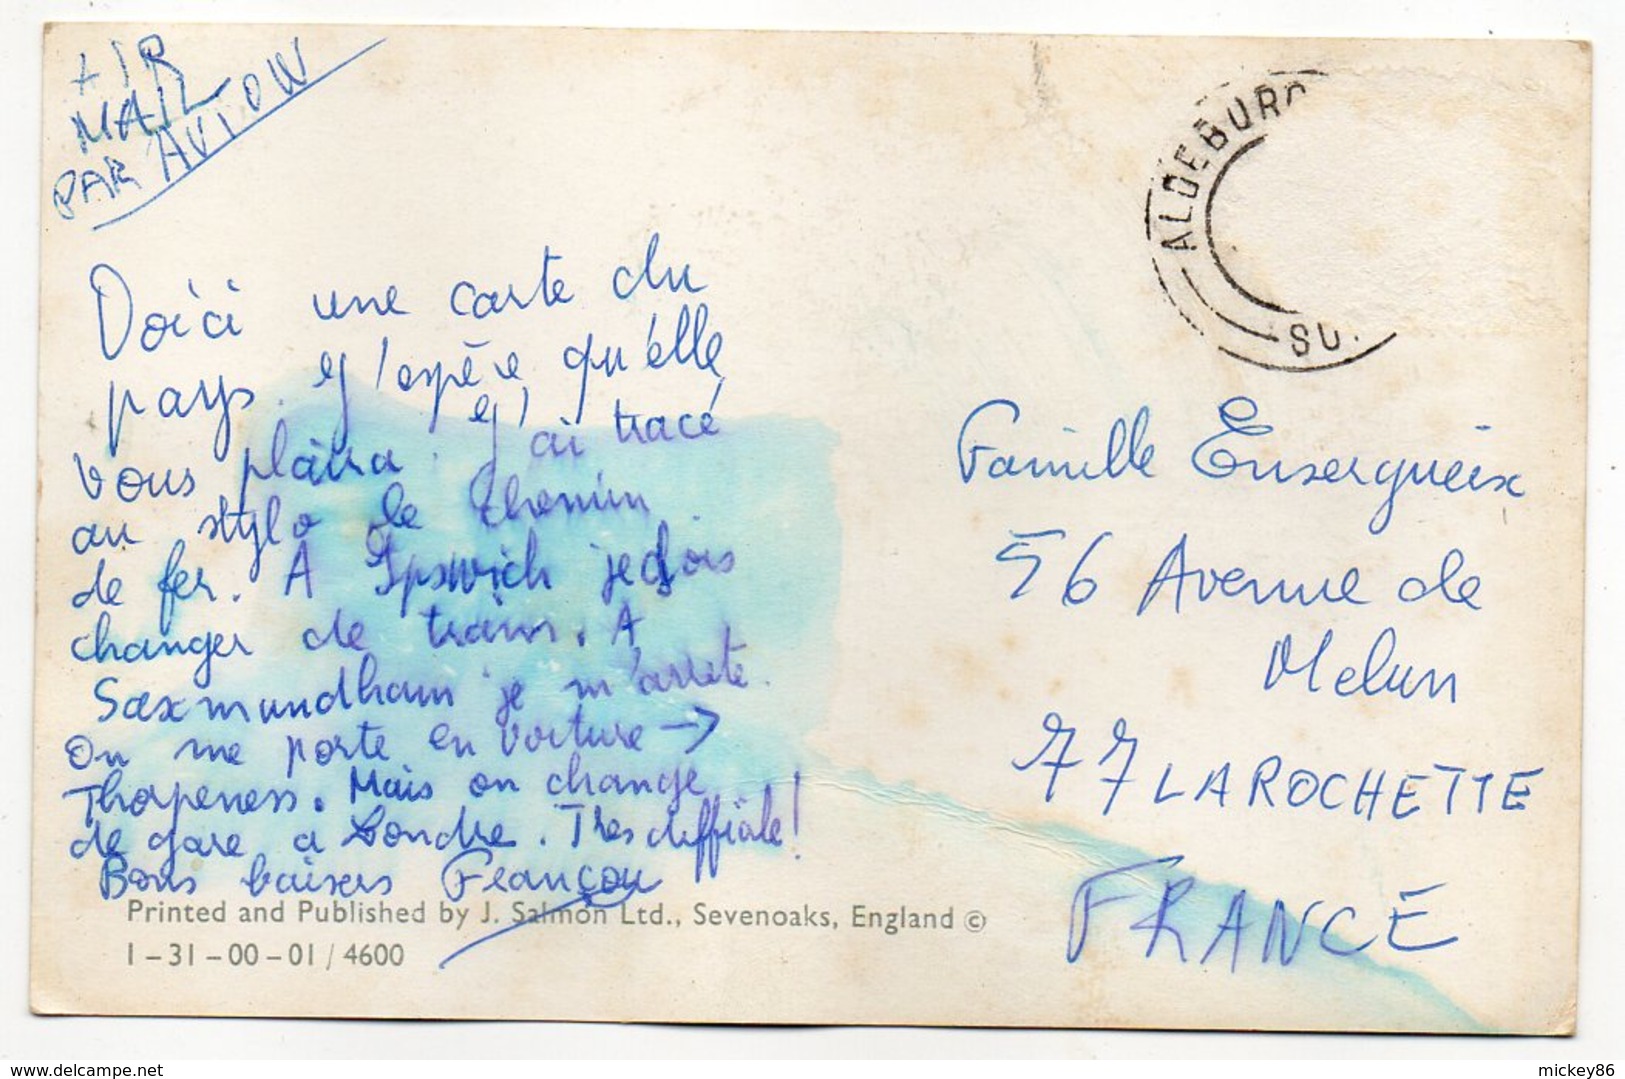 AIR
MAIL
PAR AVION
ALDEBURG
SU.
Voici une carte du
pays. J'espère qu'elle
vous plaira. J'ai tracé
au stylo le chemin
de fer. A Ipswich je dois
changer de train. A
Saxmundham je m'arrête.
On me porte en voiture →
Thorpeness. Mais on change
de gare à Londre. Très difficile!
Bons baisers Françou
Famille Ensergueix
56 Avenue de
Melun
77 LAROCHETTE
FRANCE
Printed and Published by J. Salmon Ltd., Sevenoaks, England ©
1-31-00-01/4600
delcampe.net
mickey86